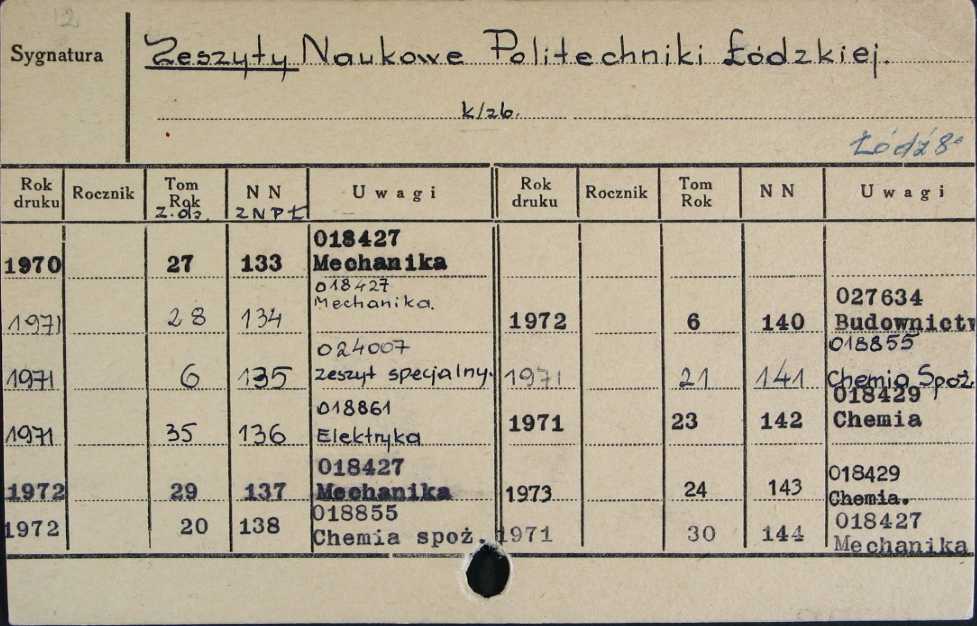 12
Sygnatura
Zeszyty Naukowe Politechniki Łódzkiej.
k/zb.
Łódź 8°
Rok druku Rocznik Tom Rok z.ds. N N ZNPŁ U w a g i Rok druku Rocznik Tom Rok N N U w a g i
1970 27 133 018427 Mechanika
1971 28 134 018427 Mechanika.
1971 6 135 024007 zeszyt specjalny.
1971 35 136 018861 Elektryka
1972 29 137 018427 Mechanika
1972 20 138 018855 Chemia spoż.
1972 6 140 027634 Budownictw
1971 21 141 018855 Chemia Spoż.
1971 23 142 018429 Chemia
1973 24 143 018429 Chemia.
1971 30 144 018427 Mechanika